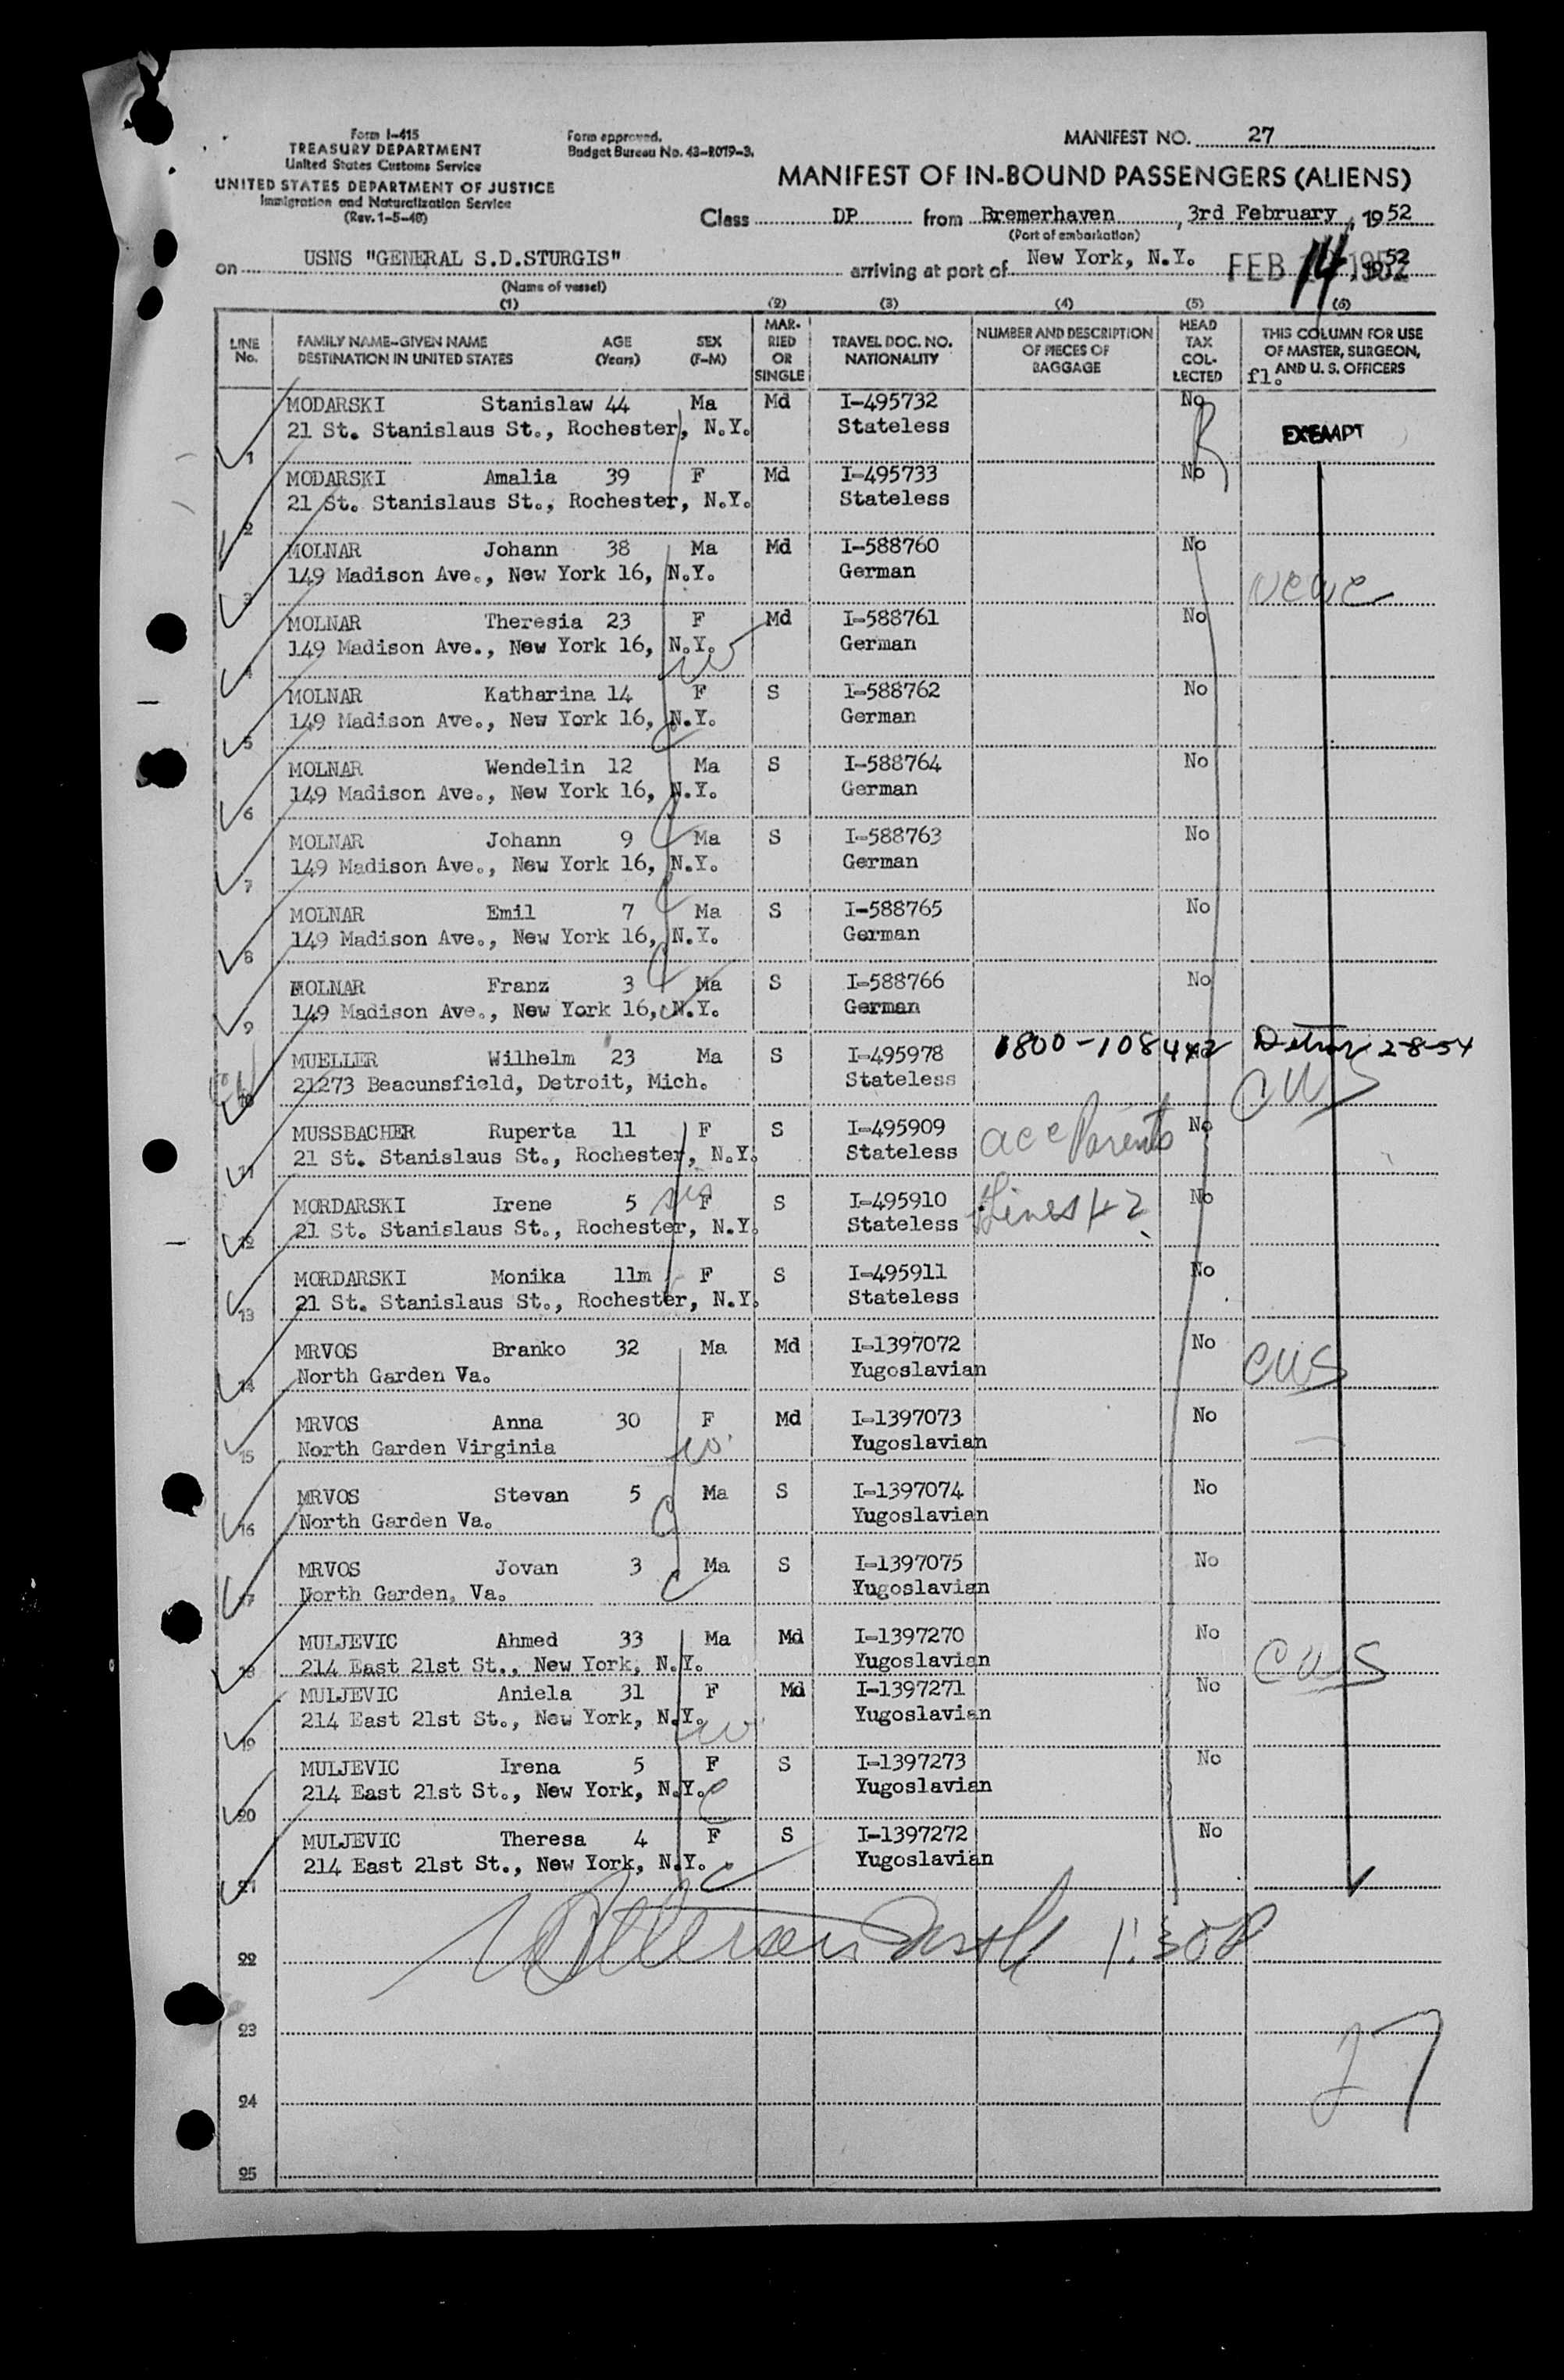 Form I-415
TREASURY DEPARTMENT
United States Customs Service
UNITED STATES DEPARTMENT OF JUSTICE
Immigration and Naturalization Service
(Rev. 1-5-48)
Form approved.
Budget Bureau No. 43-R019-3.
MANIFEST NO. 27
MANIFEST OF IN-BOUND PASSENGERS (ALIENS)
Class DP from Bremerhaven, 3rd February, 1952
(Port of embarkation)
on USNS "GENERAL S.D.STURGIS" arriving at port of New York, N.Y. FEB 14 1952
(Name of vessel)
(1) (2) (3) (4) (5) (6)
LINE No. FAMILY NAME-GIVEN NAME DESTINATION IN UNITED STATES AGE (Years) SEX (F-M) MARRIED OR SINGLE TRAVEL DOC. NO. NATIONALITY NUMBER AND DESCRIPTION OF PIECES OF BAGGAGE HEAD TAX COLLECTED THIS COLUMN FOR USE OF MASTER, SURGEON, AND U. S. OFFICERS
fl.
MODARSKI Stanislaw 44 Ma Md I-495732 No
21 St. Stanislaus St., Rochester, N.Y. Stateless EXEMPT
1
MODARSKI Amalia 39 F Md I-495733 No
21 St. Stanislaus St., Rochester, N.Y. Stateless
2
MOLNAR Johann 38 Ma Md I-588760 No
149 Madison Ave., New York 16, N.Y. German
3
MOLNAR Theresia 23 F Md I-588761 No
149 Madison Ave., New York 16, N.Y. German
4 w
MOLNAR Katharina 14 F S I-588762 No
149 Madison Ave., New York 16, N.Y. German
5 c
MOLNAR Wendelin 12 Ma S I-588764 No
149 Madison Ave., New York 16, N.Y. German
6 c
MOLNAR Johann 9 Ma S I-588763 No
149 Madison Ave., New York 16, N.Y. German
7 c
MOLNAR Emil 7 Ma S I-588765 No
149 Madison Ave., New York 16, N.Y. German
8 c
MOLNAR Franz 3 Ma S I-588766 No
149 Madison Ave., New York 16, N.Y. German
9 c
MUELLER Wilhelm 23 Ma S I-495978 0800-108442 2-8-54
21273 Beacunsfield, Detroit, Mich. Stateless CWS
10
MUSSBACHER Ruperta 11 F S I-495909 acc Parents No
21 St. Stanislaus St., Rochester, N.Y. Stateless
11
MORDARSKI Irene 5 sis F S I-495910 Lines 1+2 No
21 St. Stanislaus St., Rochester, N.Y. Stateless
12
MORDARSKI Monika 11m F S I-495911 No
21 St. Stanislaus St., Rochester, N.Y. Stateless
13
MRVOS Branko 32 Ma Md I-1397072 No
North Garden Va. Yugoslavian CWS
14
MRVOS Anna 30 F Md I-1397073 No
North Garden Virginia w Yugoslavian
15
MRVOS Stevan 5 Ma S I-1397074 No
North Garden Va. c Yugoslavian
16
MRVOS Jovan 3 Ma S I-1397075 No
North Garden, Va. c Yugoslavian
17
MULJEVIC Ahmed 33 Ma Md I-1397270 No
214 East 21st St., New York, N.Y. Yugoslavian CWS
18
MULJEVIC Aniela 31 F Md I-1397271 No
214 East 21st St., New York, N.Y. w Yugoslavian
19
MULJEVIC Irena 5 F S I-1397273 No
214 East 21st St., New York, N.Y. c Yugoslavian
20
MULJEVIC Theresa 4 F S I-1397272 No
214 East 21st St., New York, N.Y. c Yugoslavian
21
22 1:30P
23
27
24
25